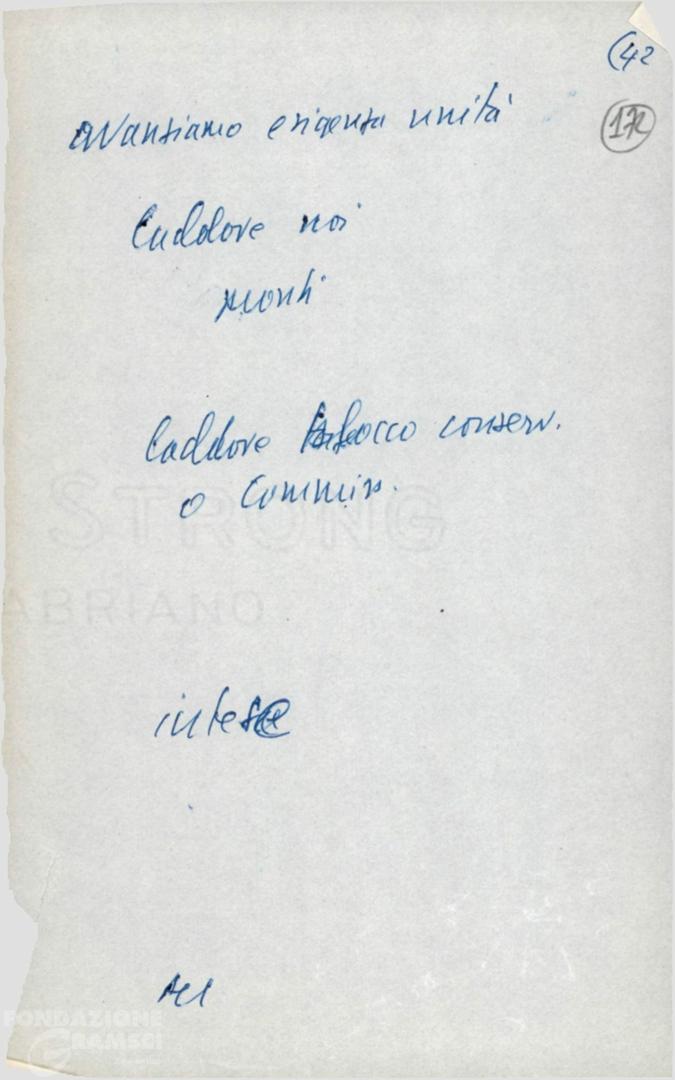 (42
172
avanziamo esigenza unità
Laddove noi
pronti
Laddove blocco conserv.
o Commiss.
STRONG
ABRIANO
intese
FONDAZIONE
GRAMSCI